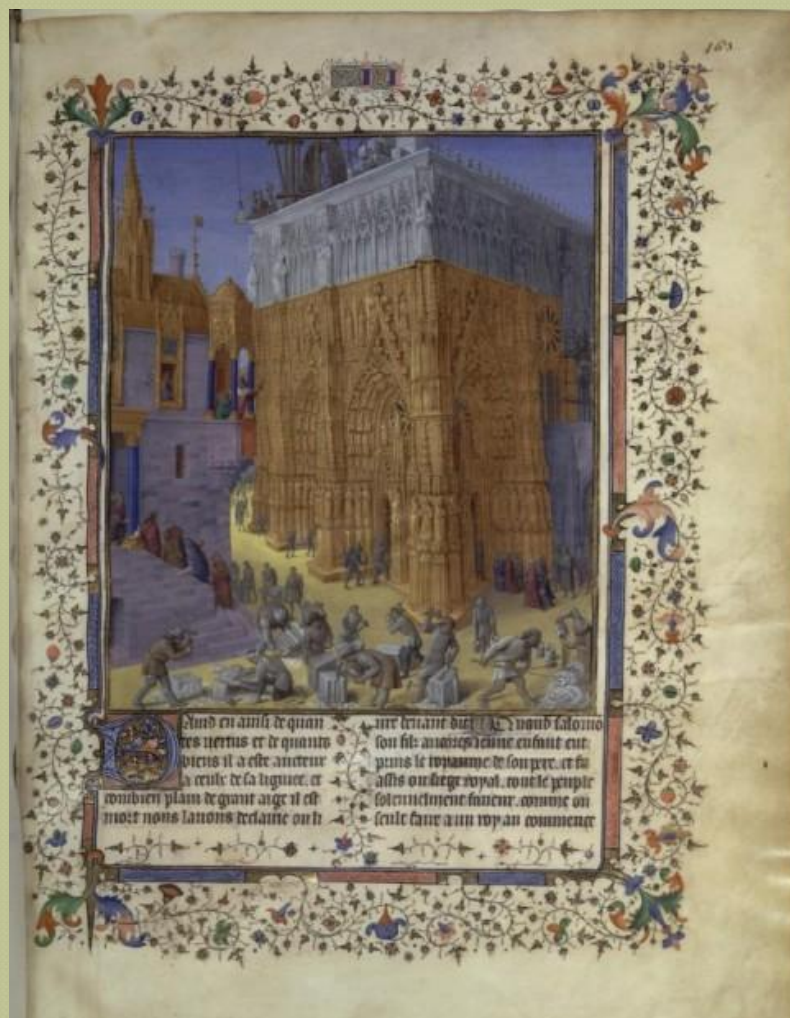 163
Dauid en aussi de quan
tes uertus et de quants
biens il a este aucteur
a ceulx de sa lignee. et
combien plain de grant aage il est
mort nous lauons declaire ou li
ure deuant dit. Quand salomo
son filz ancores ieune enfant eut
prins le royaume de son pere. et fu
assis ou siege royal. tout le peuple
solennelment faueur. comme on
seult faire a un roy au commence